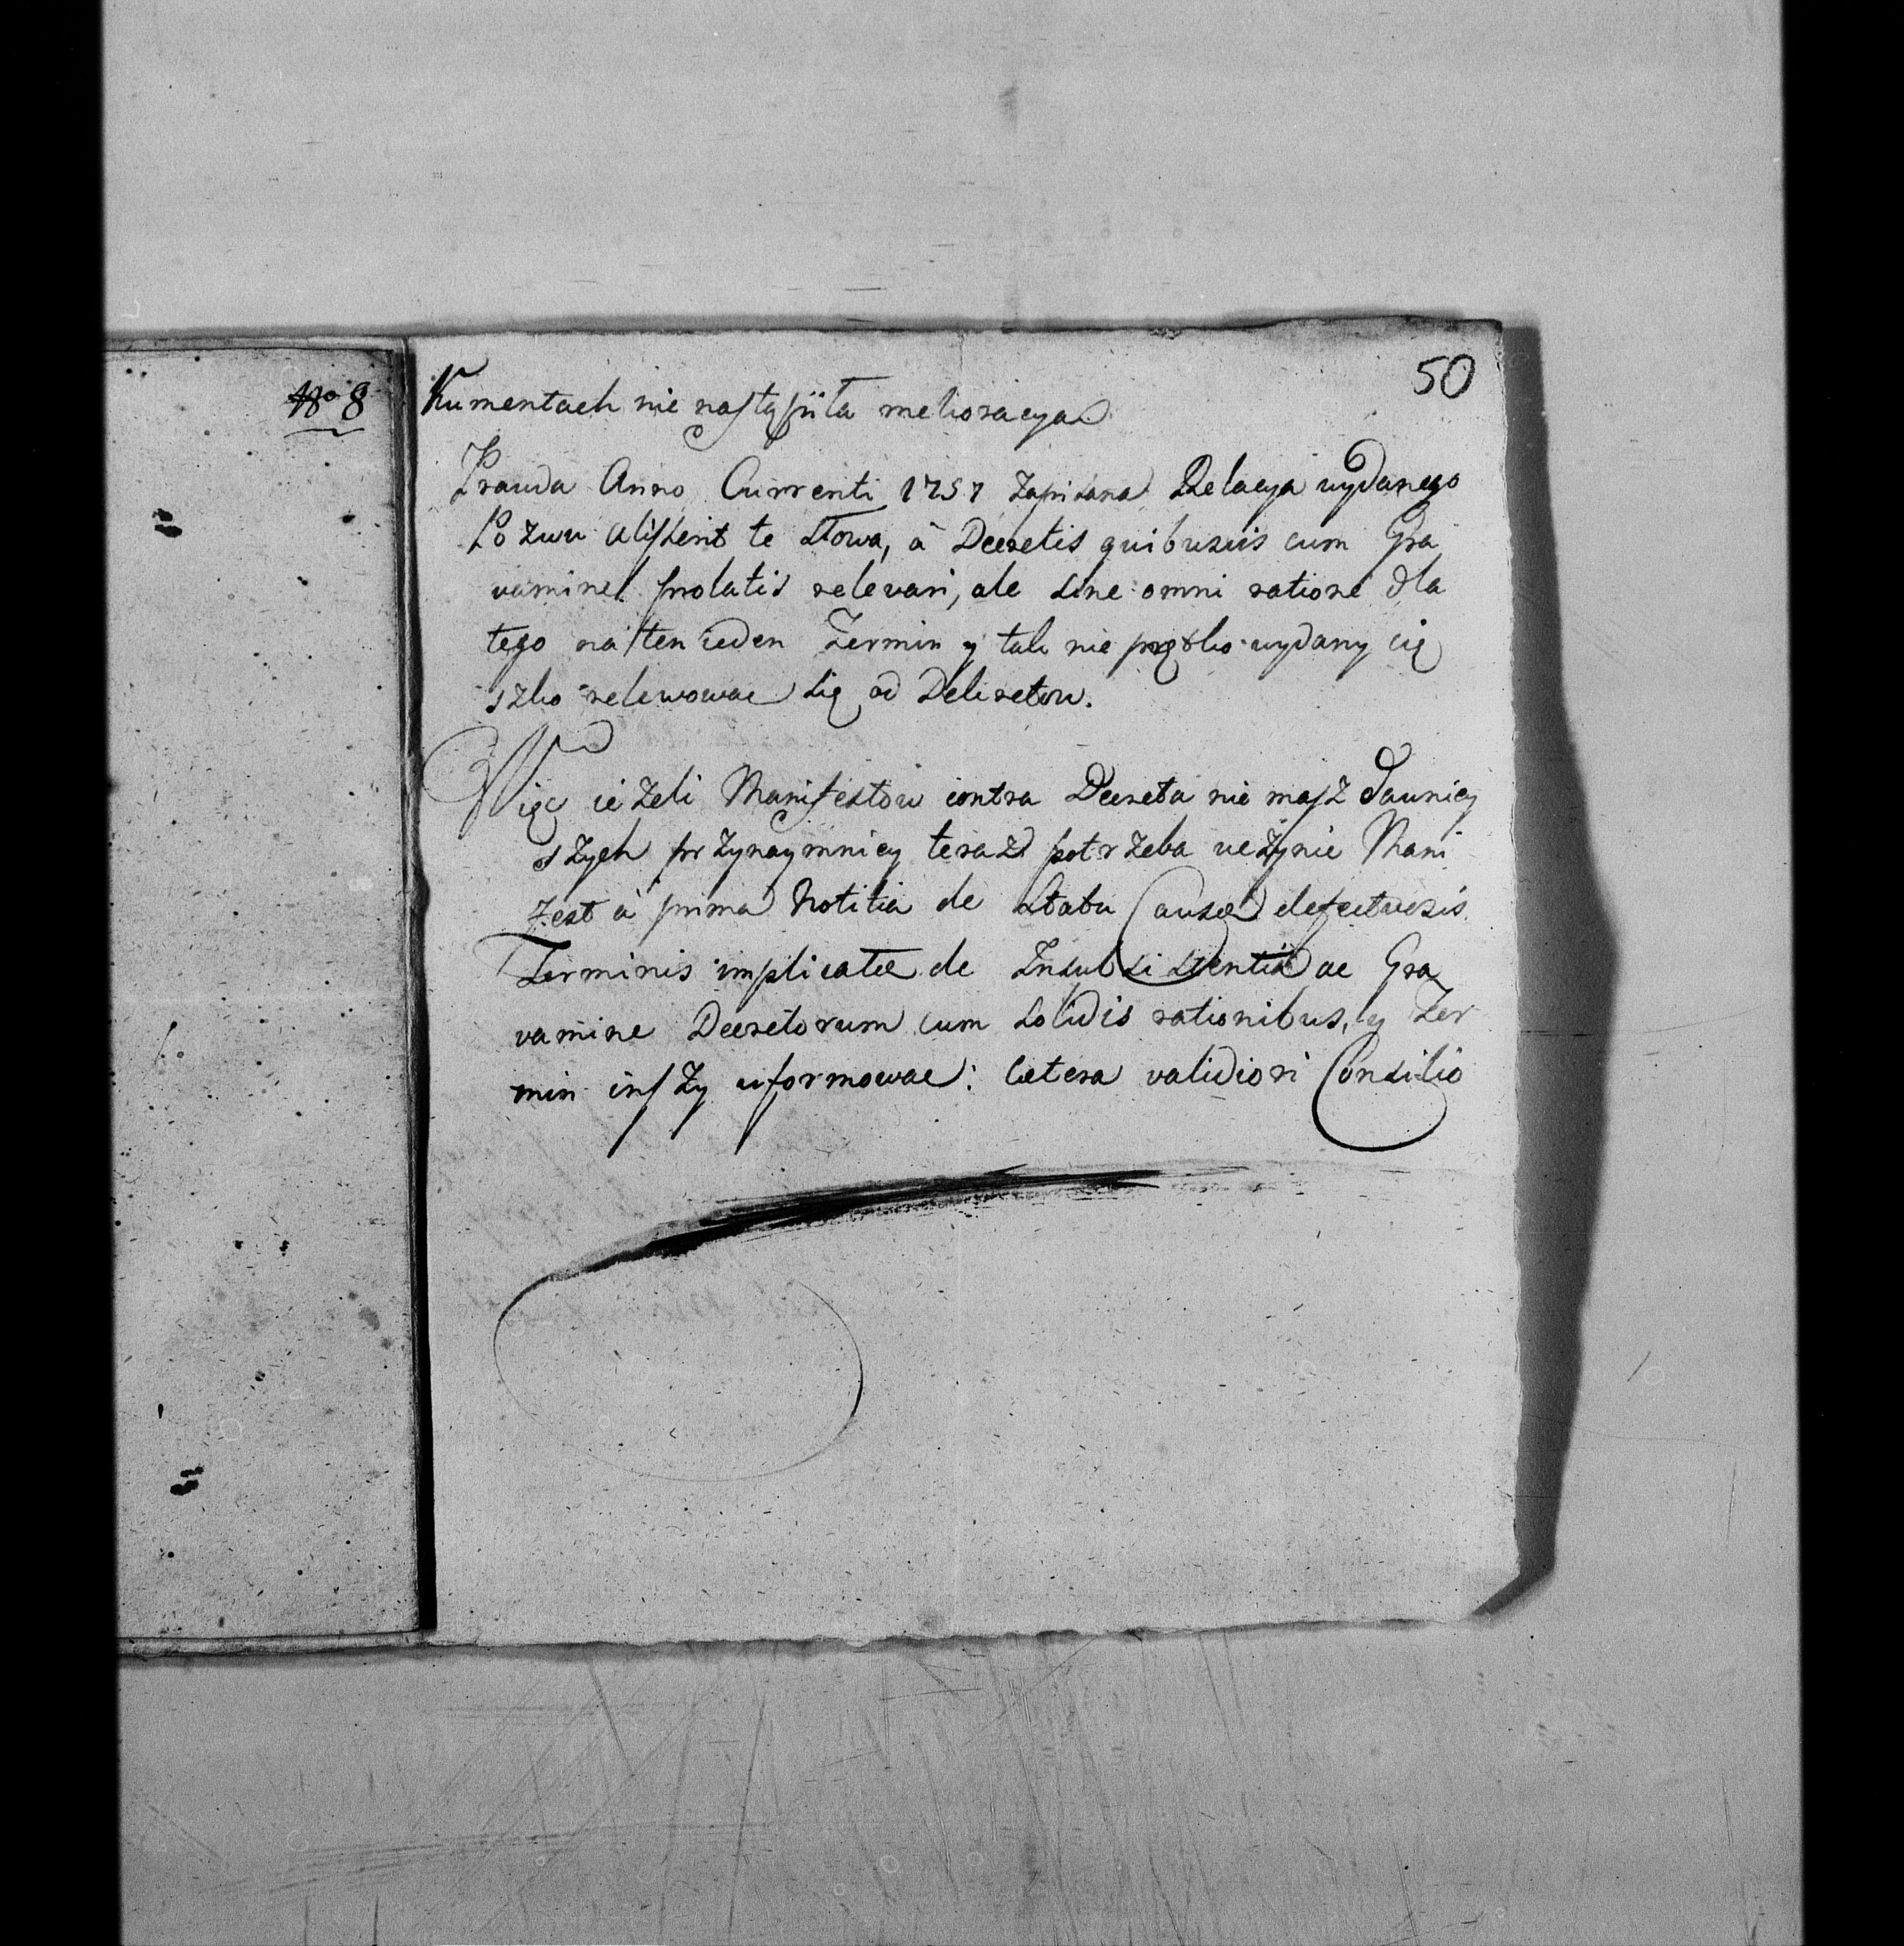 No 8
50
kumentach nie nastąpiiła melioracya
Prawda Anno Currenti 1757 zapisana Relacya wydanego
Pozwu te słowa, à Decretis quibusvis cum Gra
vamine prolatis relevari, ale sine omni ratione dla
tego na ten ieden Termin y tak nie prętko wydany cię
szko relewowac się od Dekretow.
Więc ieżeli Manifestow contra Decreta nie masz dawniey
szych przynaymniey teraz potrzeba uczynic Mani
fest à prima Notitia de Statu Causæ defectuosis
Terminis implicatæ de Insubsistentia ac Gra
vamine Decretorum cum solidis rationibus, y Ter
min inszy uformowac: Cætera validiori Consilio